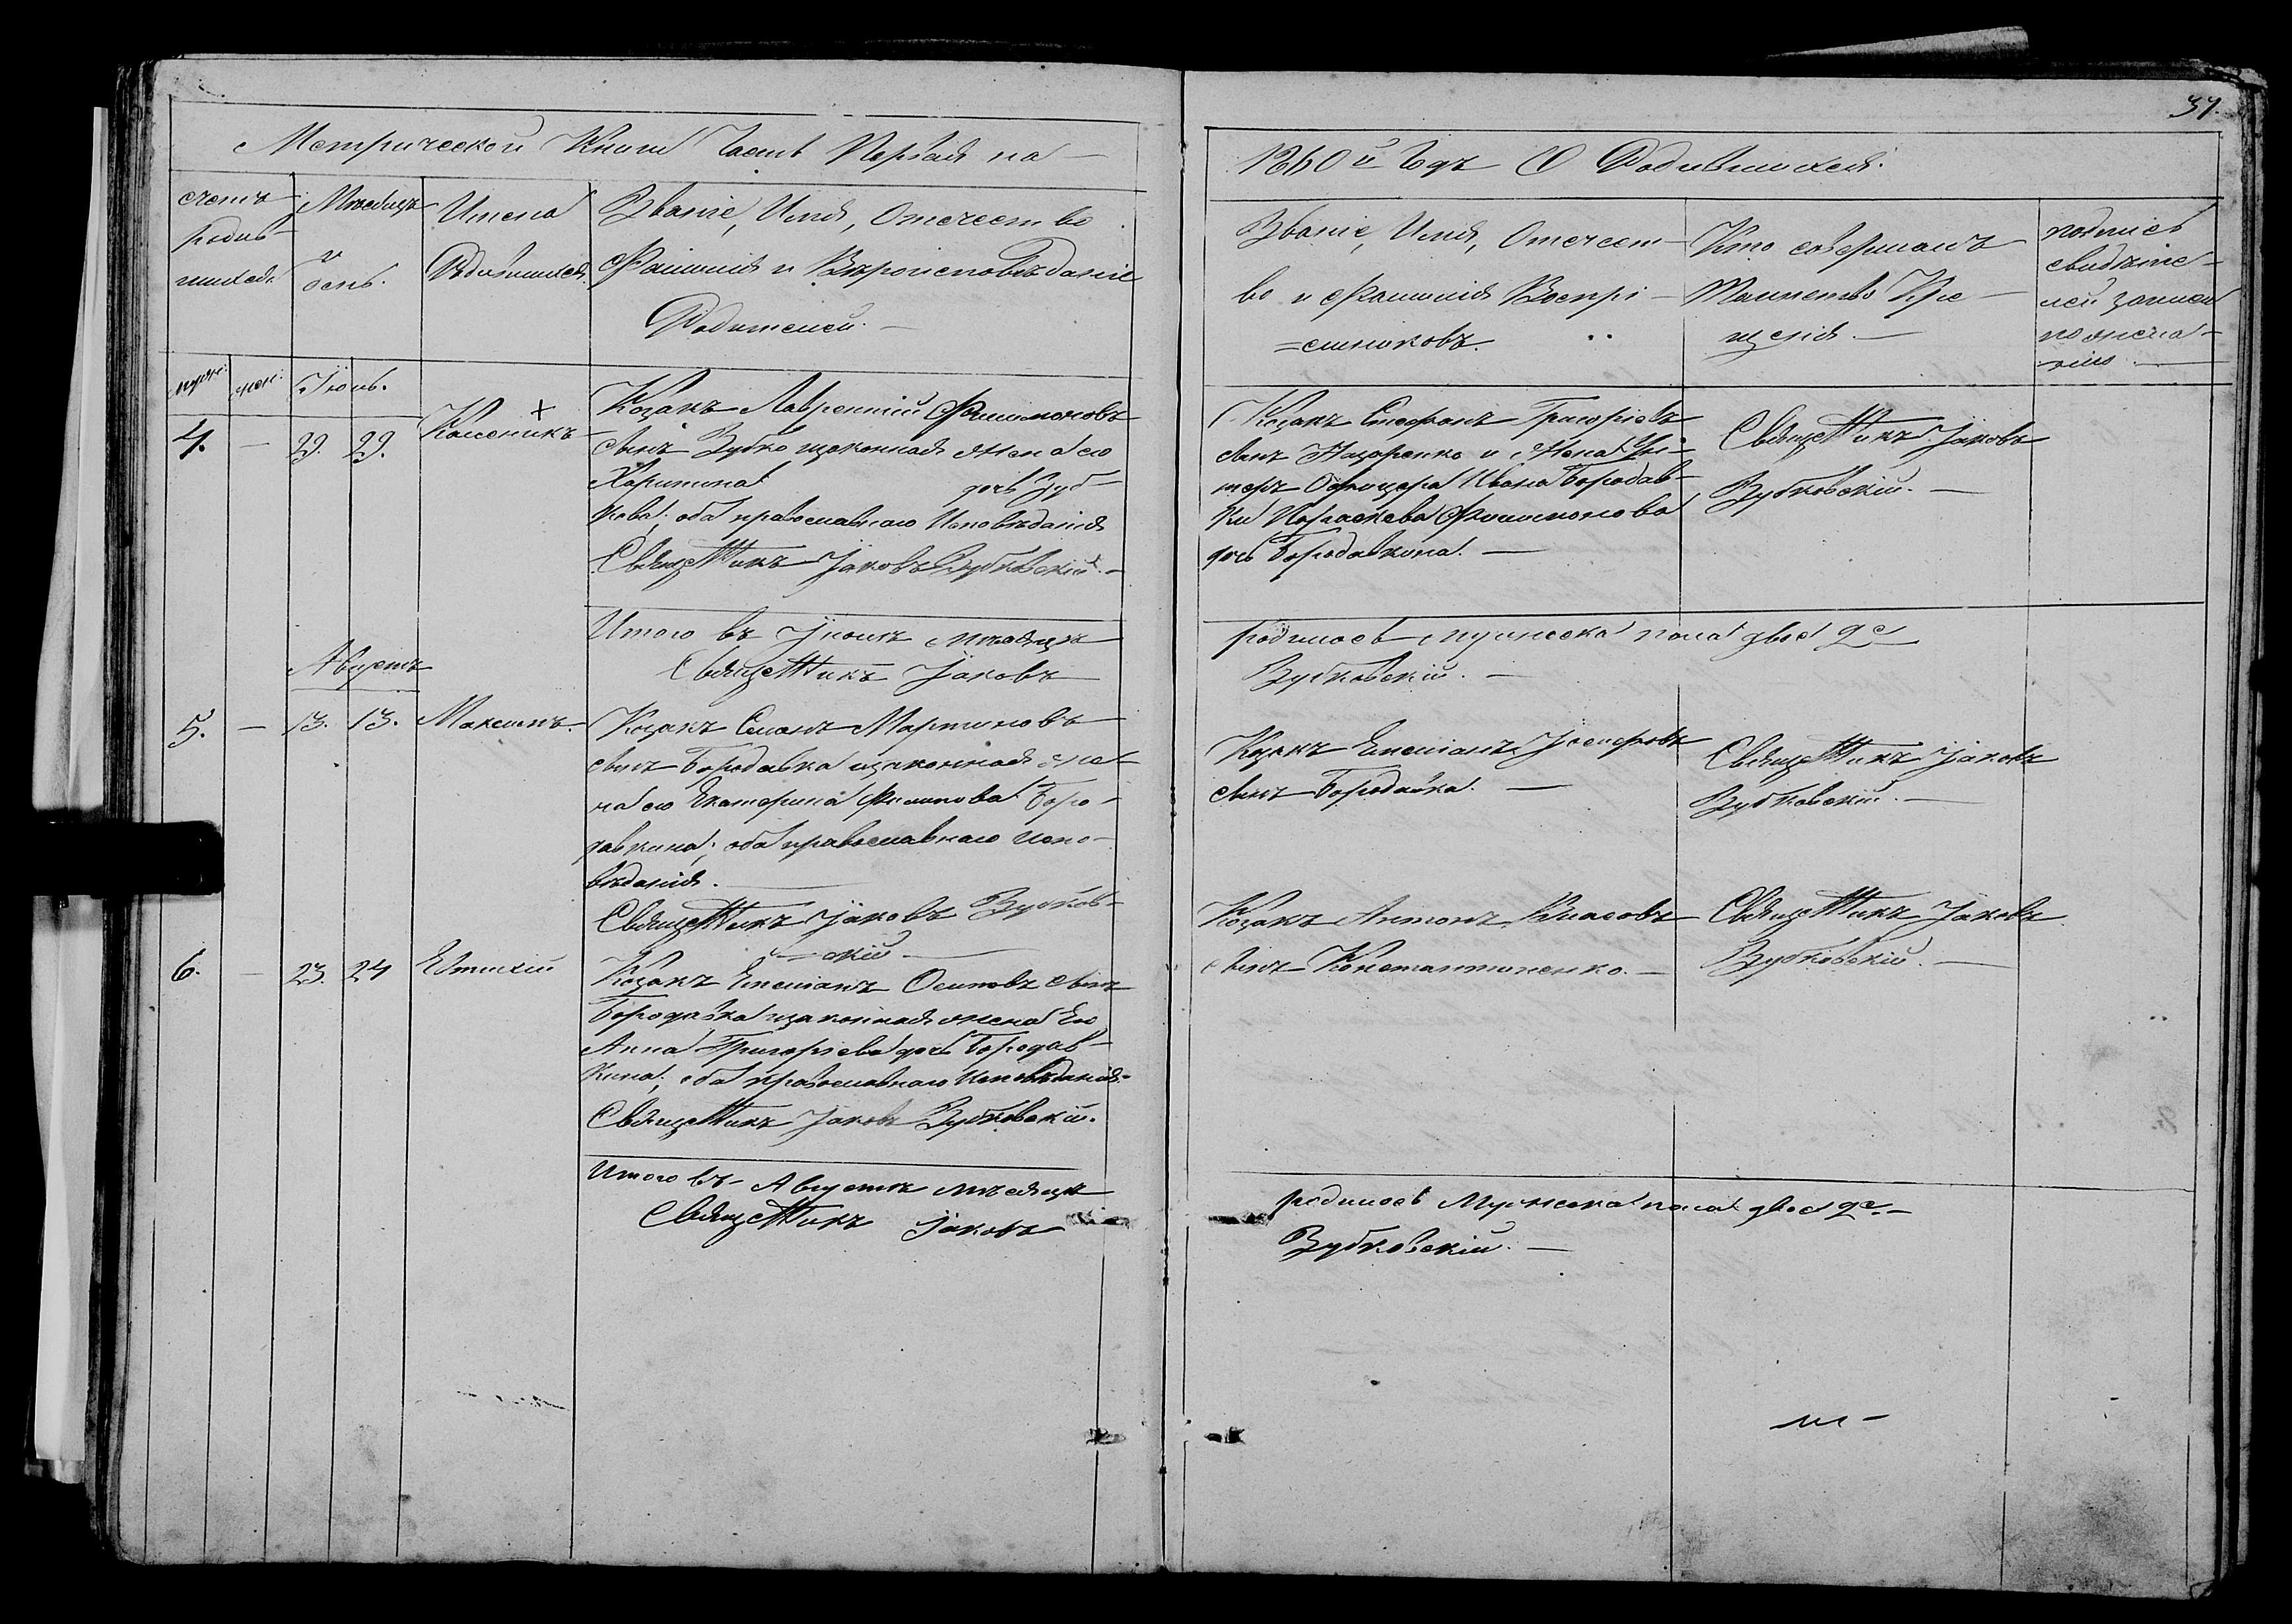 37.
Метрической Книги Часть Первая на —
1860й Годъ О Родившихся.
счетъ родив- шихся.
Мѣсяцъ и день.
Имена Родившихся.
Званіе, Имя, Отечество
Фамилія и Вѣроисповѣданіе
Родителей. —
Званіе, Имя, Отечест-
во и Фамилія Воспрі-
=емниковъ.
Кто совершалъ
Таинство Кре-
щенія. —
подпись
свидѣте-
лей записи
по жела-
нію —
муж: жен: Іюнь.
4. — 29. 29. Каленикъ
Козакъ Лаврентій Филимоновъ
сынъ Зубко изаконная жена его
Харитина дочь Зуб-
кова; оба православнаго Исповѣданія
Священникъ Іаковъ Зубковскій. —
Козакъ Стефанъ Григорьевъ
сынъ Назаренко и Жена Ун-
теръ Офицера Ивана Бородав-
ки Параскева Филимонова
дочь Бородавкина. —
Священникъ Іаковъ
Зубковскій. —
Итого въ Іюнѣ мѣсяцѣ
родилось мужеска пола двое 2е
Священникъ Іаковъ
Зубковскій. —
Августъ
5. — 13. 13. Максимъ.
Козакъ Симонъ Мартиновъ
сынъ Бородавка изаконная же-
на его Екатерина Филипова Боро-
давкина; оба православнаго испо-
вѣданія. —
Священникъ Іаковъ Зубков-
скій —
Козакъ Емеліанъ Іосифовъ
сынъ Бородавка. —
Священникъ Іаковъ
Зубковскій. —
6. — 23. 24 Евтихій
Козакъ Емеліанъ Осиповъ сынъ
Бородавка изаконная жена Его
Анна Григорьева дочь Бородав-
кина; оба православнаго Исповѣданія.
Священникъ Іаковъ Зубковскій.
Козакъ Антонъ Власовъ
сынъ Константиненко. —
Священникъ Іаковъ
Зубковскій. —
Итого въ Августѣ мѣсяцѣ
родилось Мужеска пола двое 2е. —
Священникъ Іаковъ
Зубковскій. —